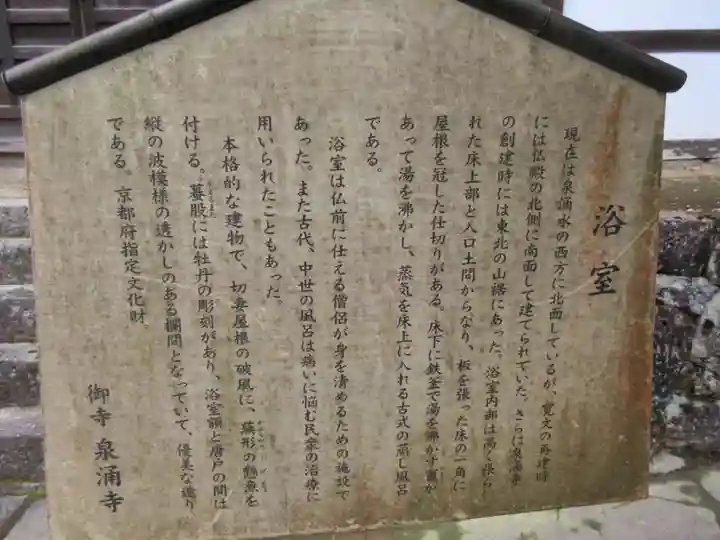 浴室
現在は泉涌水の西方に北面しているが、寛文の再建時
には仏殿の北側に南面して建てられていた。さらに泉涌寺
の創建時には東北の山裾にあった。浴室内部は高く張ら
れた床上部と入口土間からなり、板を張った床の一角に
屋根を冠した仕切りがある。床下に鉄釜で湯を沸かす竈が
あって湯を沸かし、蒸気を床上に入れる古式の蒸し風呂
である。
浴室は仏前に仕える僧侶が身を清めるための施設で
あった。また古代、中世の風呂は病いに悩む民衆の治療に
用いられたこともあった。
本格的な建物で、切妻屋根の破風に、蕪形の懸魚を
付ける。蟇股には牡丹の彫刻があり、浴室額と唐戸の間は
縦の波模様の透かしのある欄間となっていて、優美な造り
である。京都府指定文化財。
御寺 泉涌寺